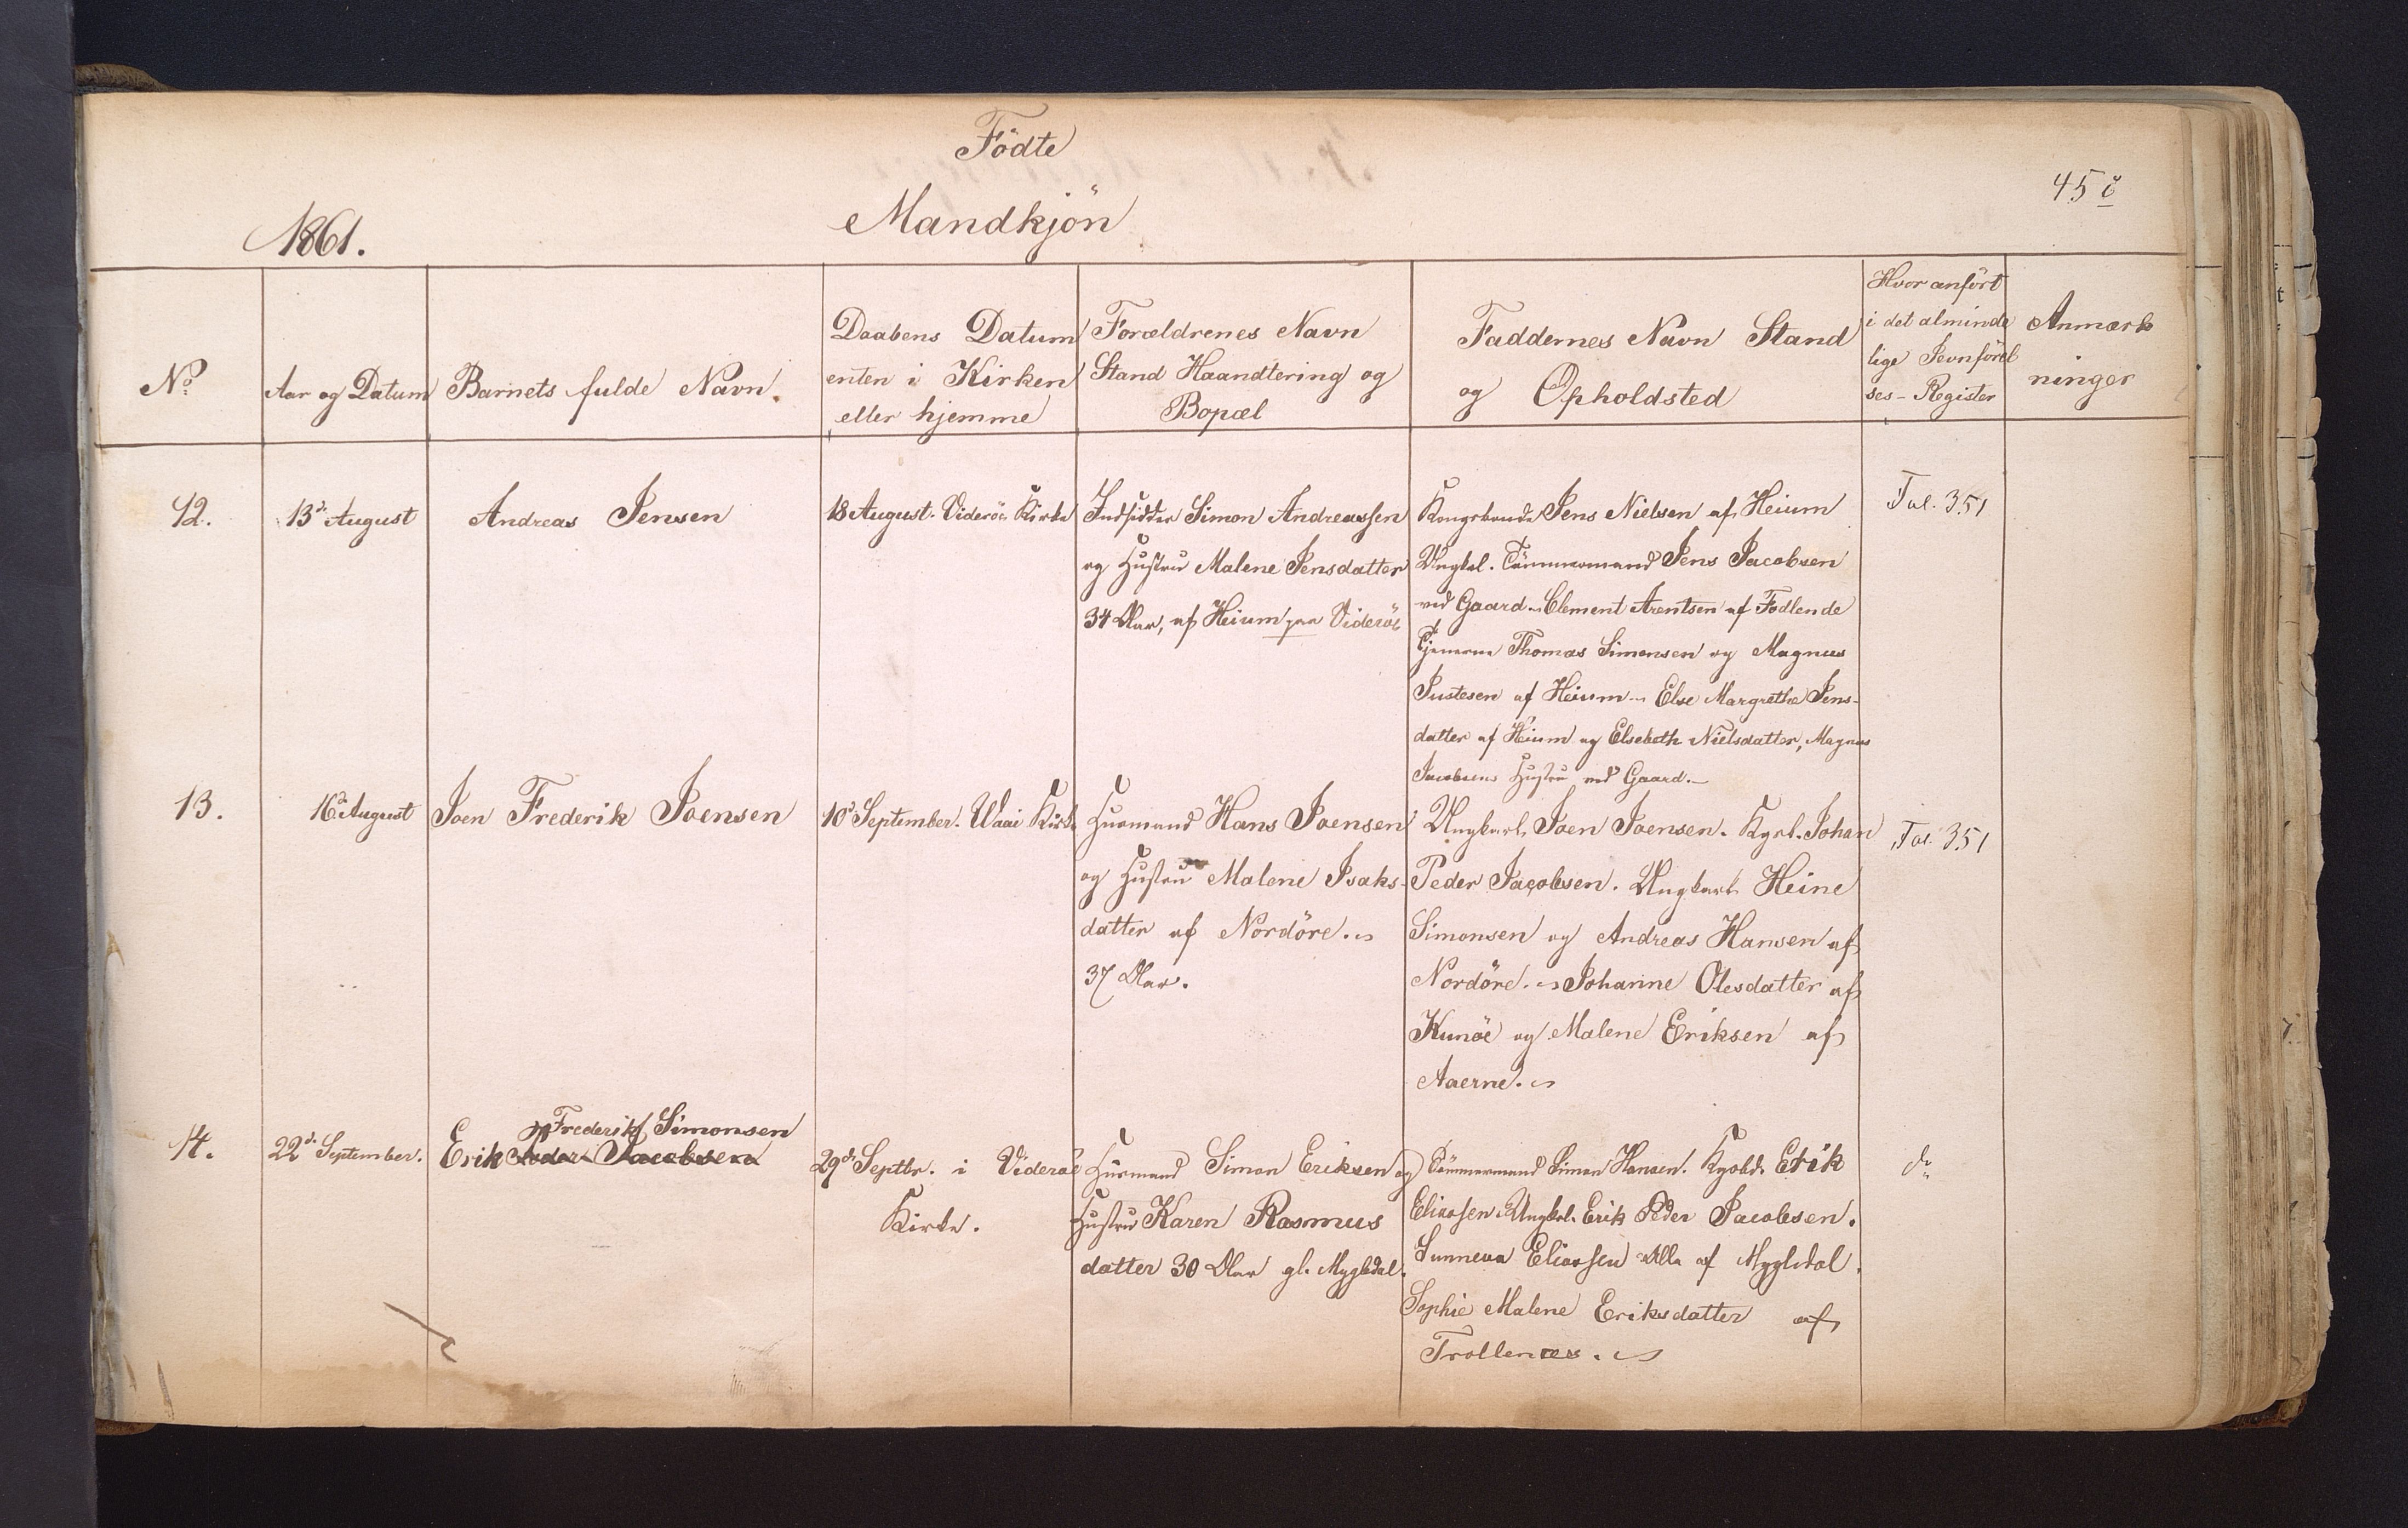 Födte
45
Mandkjön
1861.
No
Aar og Datum
Barnets fulde Navn.
Daabens Datum
enten i Kirken
eller hjemme
Forældrenes Navn
Stand Haandtering og
Bopæl
Faddernes Navn Stand
og Opholdsted
Hvor anført
i det alminde
lige Jevnförel
ses-Register
Anmærk
ninger
12.
13d August
Andreas Jensen
18 August. Viderö Kirke
Indsidder Simon Andreassen
og Hustru Malene Jensdatter
34 Aar, af Heium paa Videröe
Kongsbonde Jens Nielsen af Heium
Ungkal. Tömmermand Jens Jacobsen
ved Gaard. Clement Arentsen af Fodlende
Tjenerne Thomas Simonsen og Magnus
Justesen af Heium - Else Margrethe Jens-
datter af Heium og Elsebeth Nielsdatter, Magnus
Jacobsens Hustru ved Gaard.-
Tal. 351
13.
16d August
Joen Frederik Joensen
10d September. Waai Kirke
Huusmand Hans Joensen
og Hustru Malene Isaks-
datter af Nordöre.
37 Aar.
Ungkarl, Joen Joensen. Kgsb. Johan
Peder Jacobsen. Ungkarl Heine
Simonsen og Andreas Hansen af
Nordöre. Johanne Olesdatter af
Kunöe og Malene Eriksen af
Aaerne.
Tal. 351
14.
22d September.
Frederik Simonsen
Erik Peder Jacobsen
29d Septbr. i Videröe
Kirke.
Huusmand Simon Eriksen og
Hustru Karen Rasmus
datter 30 Aar gl. Mygledal.
Tömmermand Simon Hansen. Kgsbd. Erik
Eliassen. Ungkrl. Erik Peder Jacobsen.
Sunneva Eliassen Alle af Mygledal.
Sophie Malene Eriksdatter af
Trollenæs.
do